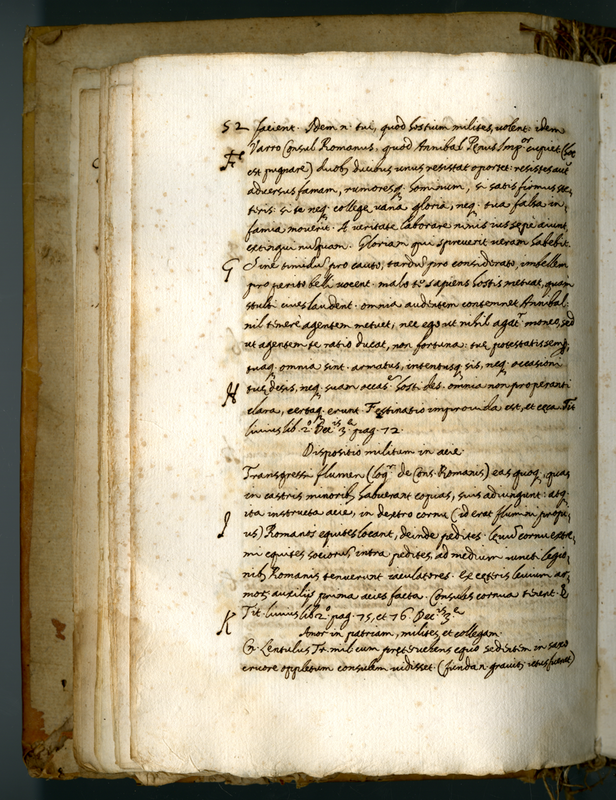 52 facient. Idem n. tui, quod hostium milites, volent: idem
F Varro Consul Romanus, quod Annibal Penus Imp.or cupiet (hoc
est pugnare) duob. ducibus unus resistat oportet: resistes autē
adversus famam, rumoresq. hominum, si satis firmus ste,
teris: si te neq. collegę vana gloria, neq. tua falsa in,
famia moverit. A veritate laborare nimis uę sepe aiunt,
extingui nūquam. Gloriam qui spreverit veram habebit.
G Sine timidū pro cauto, tardū pro considerato, imbellem
pro perito belli vocent. malo te sapiens hostis metuat, quam
stulti cives laudent. omnia audentem contemnet Annibal:
nil temere agentem metuet, nec ego ut nihil agat.r moneo, sed
ut agentem te ratio ducat, non fortuna: tuę potestatis semp.
tuaq. omnia sint. armatus, intentusq. sis, neq. occasioni
H tuę desis, neq. suam occas.e hosti des. omnia non properanti
clara, certaq. erunt. Festinatio improvida est, et cęca. Tit.
livius lib. 2.o Dec.is 3.ę pag. 12.
Dispositio militum in acie.
Transgressi flumen (loq.r de Cons. Romanis) eas quoq. quas
in castris minorib. habuerant copias, suis adiungunt: atq.
ita instructa acie, in dextro cornu (id erat flumini propi,
I us) Romanos equites locant, deinde pedites. Levū cornu extre,
mi equites sociorū intra pedites, ad medium iuncti legio,
nib. Romanis tenuerunt iaculatores. Ex cęteris levium ar,
mor. auxilijs prima acies facta. Consules cornua tenent. &
K Tit. livius lib. 2.o pag. 15, et 16. Dec.is 3.ę
Amor in patriam, milites, et collegam.
Cn. Lentulus Tr. mil. cum pręterveħens equo sedentem in saxo
cruore oppletum consulem vidisset. (funda n. graviter ictus fuerat)